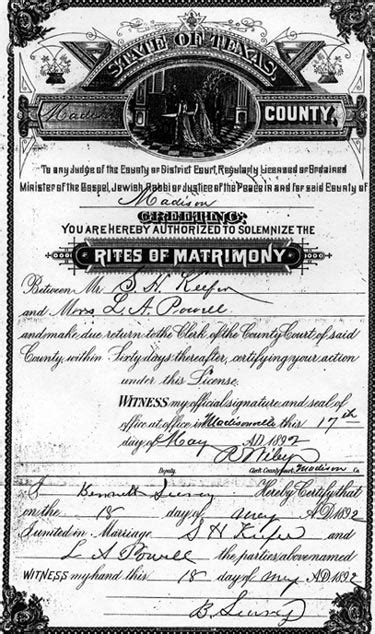 STATE OF TEXAS,
Madison COUNTY.
To any Judge of the County or District Court, Regularly Licensed or Ordained
Minister of the Gospel, Jewish Rabbi or Justice of the Peace in and for said County of
Madison
GREETING:
YOU ARE HEREBY AUTHORIZED TO SOLEMNIZE THE
RITES OF MATRIMONY
Between Mr. S H
and Mrs L. A. Powell
and make due return to the Clerk of the County Court of said
County, within Sixty days thereafter, certifying your action
under this License.
WITNESS my official signature and seal of
office at office in Madisonville this 17th
day of May A.D. 1892
R Wiley
Deputy. Clerk County Court, Madison Co
I Bennett Hereby Certify that
on the 18 day of May A.D. 1892
I united in Marriage S H and
L A Powell the parties above named
WITNESS my hand this 18 day of May A.D. 1892
B.